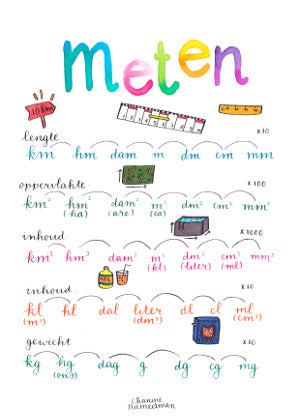 meten
10 km
lengte x10
km hm dam m dm cm mm
oppervlakte x100
km² hm² dam² m² dm² cm² mm²
(ha) (are) (ca)
inhoud x1000
km³ hm³ dam³ m³ dm³ cm³ mm³
(kl) (liter) (ml)
inhoud x10
kl hl dal liter dl cl ml
(m³) (dm³) (cm³)
gewicht x10
kg hg dag g dg cg mg
(ons)
Channe
Hameetman